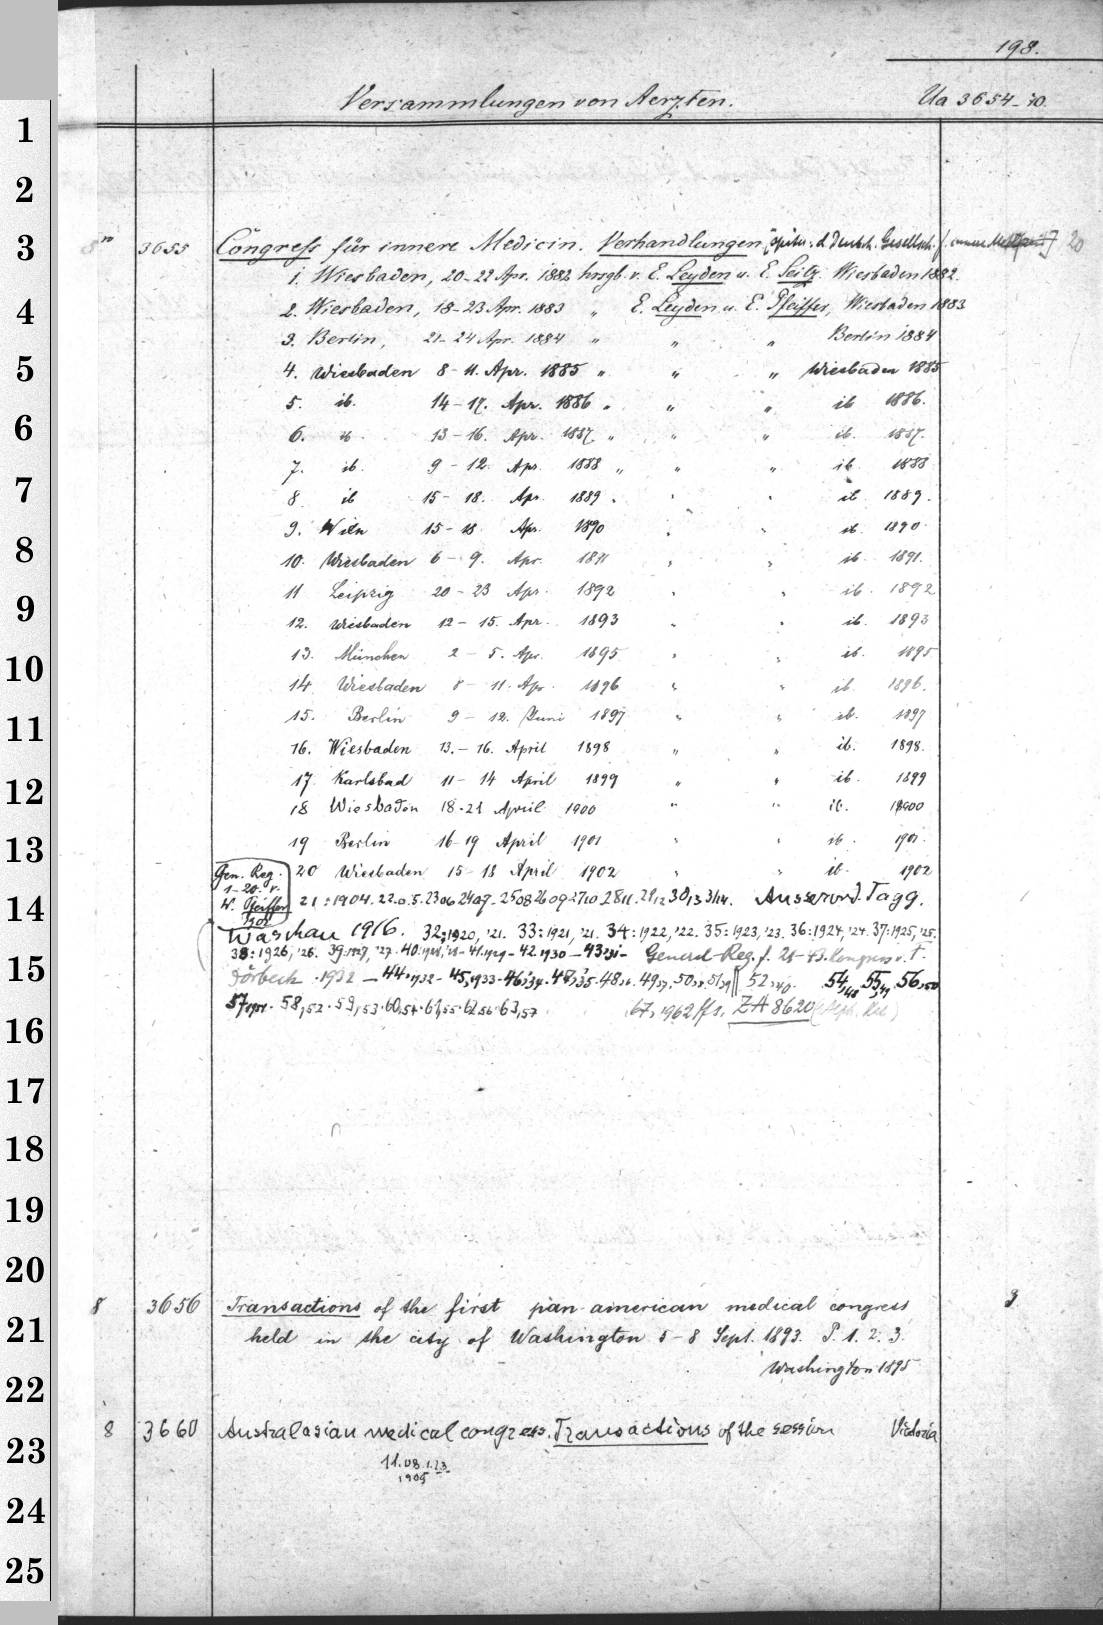 198.
Versammlungen von Aerzten. Ua 3654-70.
1
2
3
8° 3655 Congress für innere Medicin. Verhandlungen [später: d. Deutsch. Gesellsch. f. innere 20
1. Wiesbaden, 20-22 Apr. 1882 hrsgb. v. E. Leyden u. E. Seitz. Wiesbaden 1882.
4
2. Wiesbaden, 18-23 Apr. 1883 " E. Leyden u. E. Pfeiffer, Wiesbaden 1883
3. Berlin, 21-24 Apr. 1884 " " " Berlin 1884
5
4. Wiesbaden 8-11. Apr. 1885 " " " Wiesbaden 1885
5. ib. 14-17. Apr. 1886 " " " ib 1886.
6
6. ib. 13-16. Apr. 1887. " " " ib. 1887.
7. ib. 9-12. Apr. 1888 " " " ib. 1888
7
8 ib 15-18. Apr. 1889 " " " ib. 1889.
9. Wien 15-18 Apr. 1890 " " ib. 1890.
8
10. Wiesbaden 6-9. Apr. 1891 " " ib. 1891.
11 Leipzig 20-23 Apr. 1892 " " ib. 1892
9
12. Wiesbaden 12-15. Apr. 1893 " " ib. 1893
10
13. München 2-5. Apr. 1895 " " ib. 1895
14. Wiesbaden 8-11. Apr. 1896 " " ib. 1896.
11
15. Berlin 9-12. Juni 1897 " " ib. 1897
16. Wiesbaden 13.-16. April 1898 " " ib. 1898.
12
17. Karlsbad 11-14 April 1899 " " ib. 1899
18 Wiesbaden 18-21 April 1900 " " ib. 1900
13
19 Berlin 16-19 April 1901 " " ib. 1901.
20 Wiesbaden 15-18 April 1902 " " ib. 1902
Gen. Reg.
1-20. v.
W. Pfeiffer
14
21:1904. 22.0.5. 2306 2407. 2508 2609 2710 2811. 2912 3013 31/14. Ausserord. Tagg.
Warschau 1916. 32:1920, '21. 33:1921, '21. 34:1922, '22. 35:1923, '23. 36:1924, '24. 37:1925, '25.
38:1926, '26. 39:1927, '27. 40:1928, '28 - 41.1929 - 42.1930 - 43'31 - General-Reg. f. 21-43. Kongress v. T.
15
Dörbeck. 1932 - 44.1932 - 45,1933 - 46,'34. 47,'35. 48,36. 49,37, 50,38, 51,39 || 52,40. 54,48 55,49 56,50
57,1951. 58,52. 59,53. 60,54. 61,55. 62,56. 63,57 67,1962 ff s. ZA 8620
16
17
18
19
20
8 3656 Transactions of the first pan-american medical congress 3
21
held in the city of Washington 5-8 Sept. 1893. P. 1. 2. 3.
Washington 1895
22
8 3660 Australasian medical congress. Transactions of the session Victoria
23
11.08.1.2.3
1909
24
25